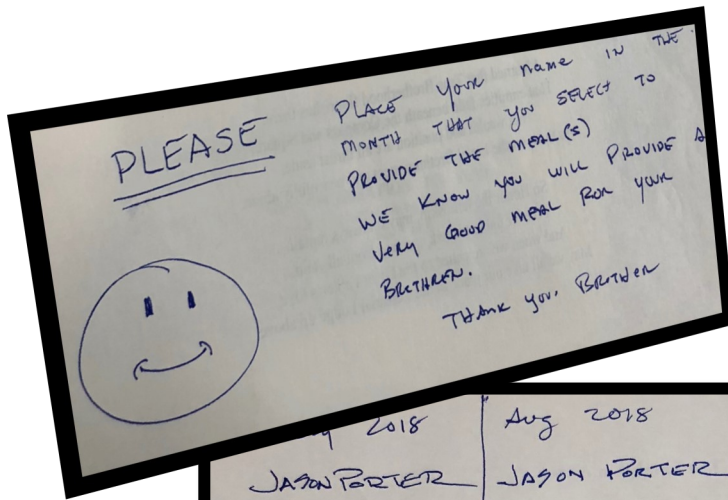 PLEASE
PLACE YOUR name IN THE
MONTH THAT YOU SELECT TO
PROVIDE THE MEAL(S)
WE KNOW YOU WILL PROVIDE A
VERY GOOD MEAL FOR YOUR
BRETHREN.
THANK YOU, BROTHER
2018
Aug 2018
JASON PORTER
JASON PORTER